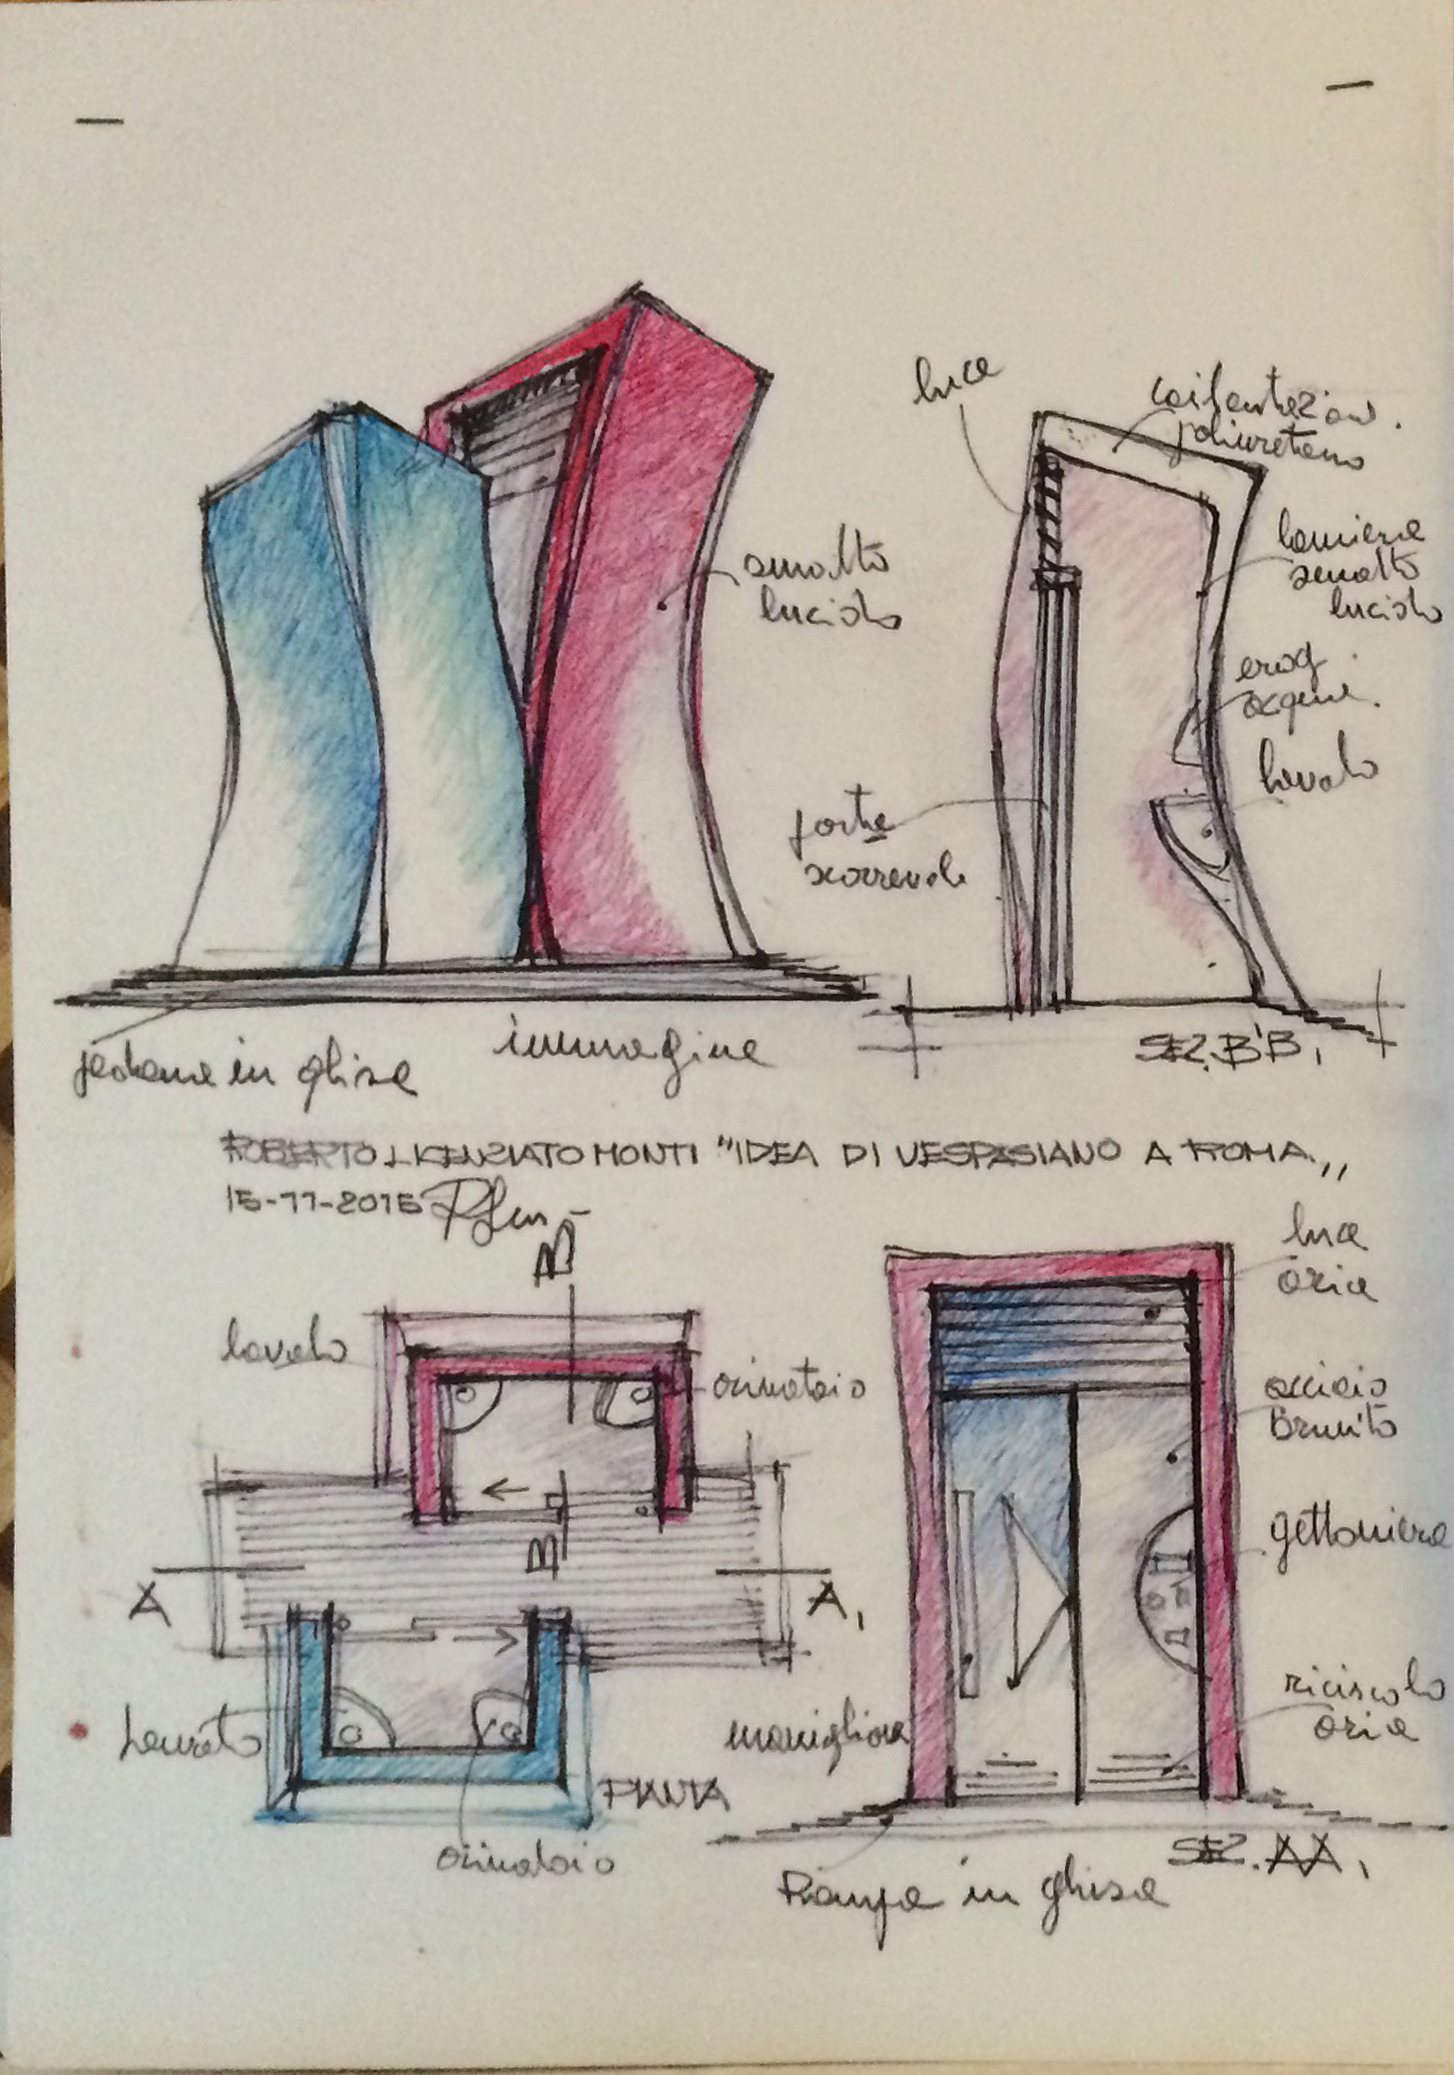 luce
coibentazion.
poliuretano
smalto
lucido
lamiera
smalto
lucido
erog.
acqua.
lavabo
porta
scorrevole
pedana in ghisa
immagine
SEZ. B'B,
ROBERTO LICENZIATO MONTI "IDEA DI VESPASIANO A ROMA,,
15-11-2015
B
luce
aria
lavabo
orinatoio
acciaio
brunito
gettoniera
B
A
A,
ricircolo
aria
lavabo
maniglione
PIANTA
orinatoio
SEZ. AA,
Rampa in ghisa